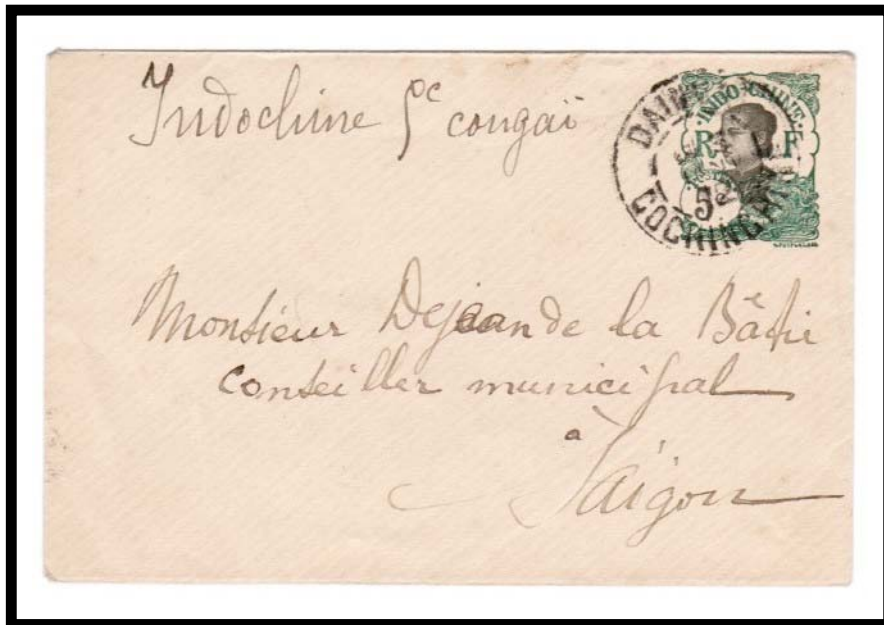 Indochine 5c congaï
INDO-CHINE
R F
COCHINCHINE
Monsieur Dejean de la Bâtie
conseiller municipal
à
Saïgon